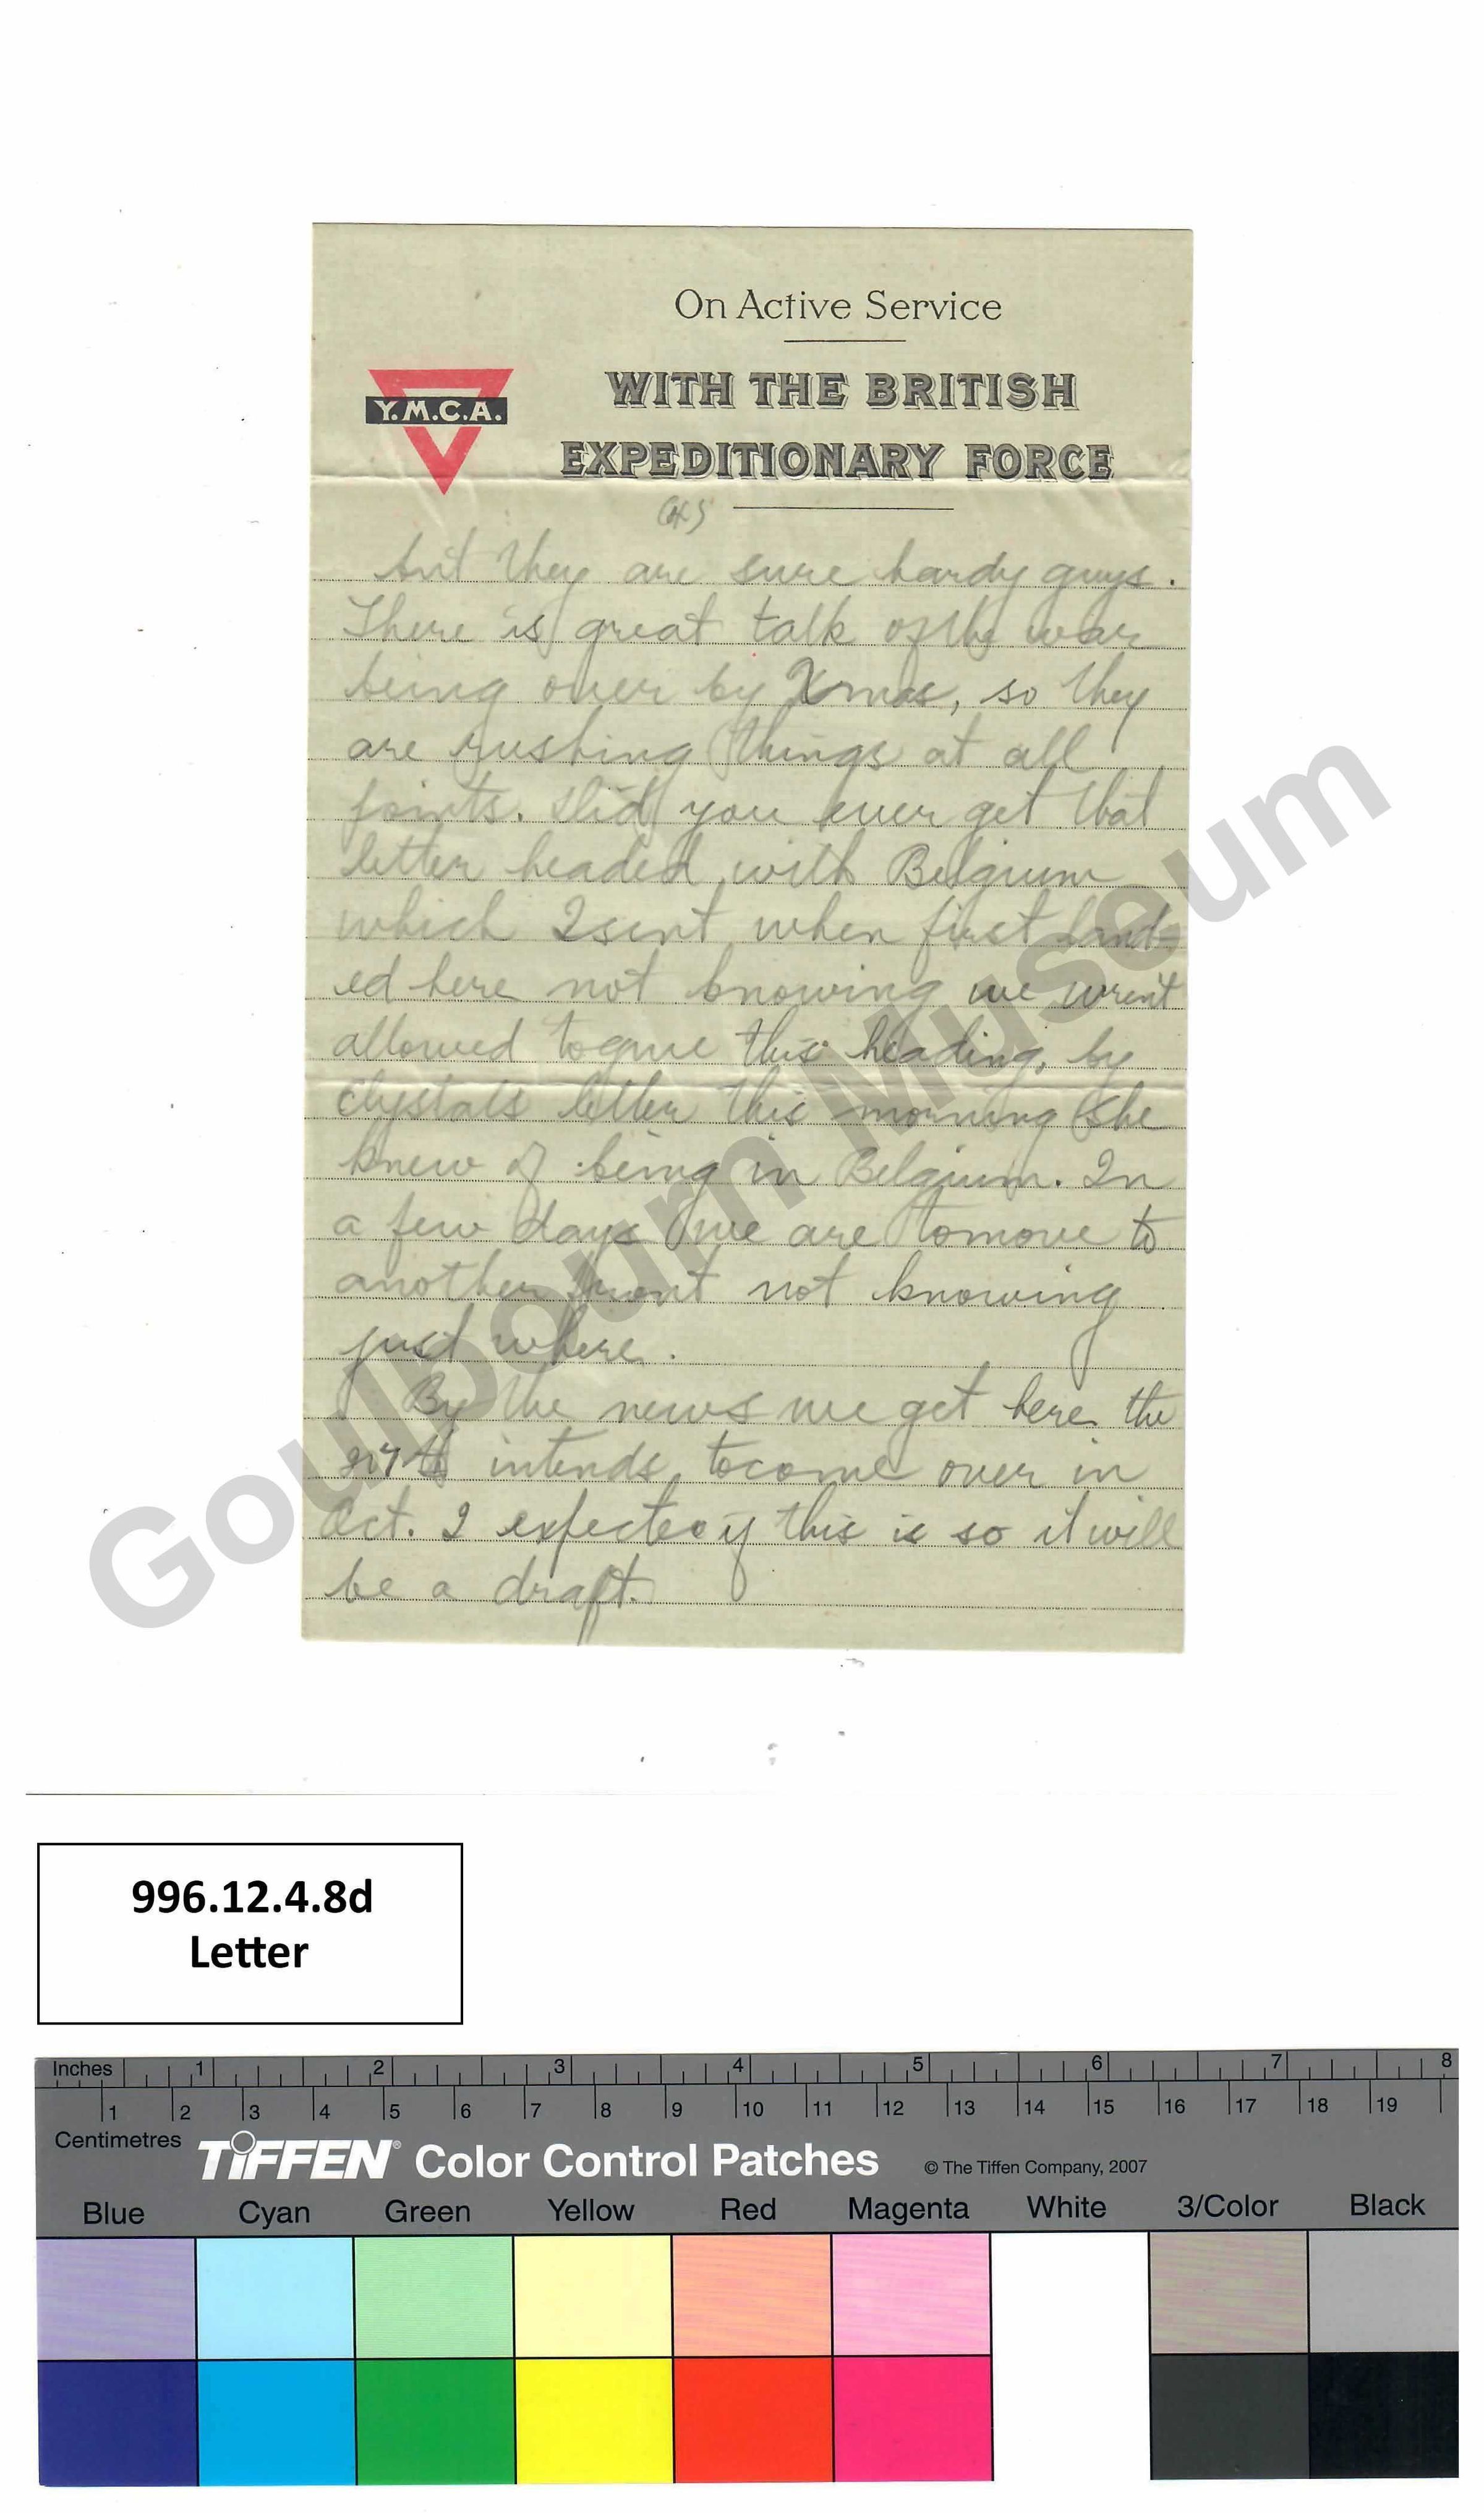 On Active Service
Y.M.C.A.
WITH THE BRITISH
EXPEDITIONARY FORCE
but they are sure hardy guys.
There is great talk of the war
being over by Xmas, so they
are rushing things at all
points. Did you ever get that
letter headed with Belgium
which I sent when first land-
ed here not knowing we wrent
allowed to give this heading, by
Chystals letter this morning she
knew of being in Belgium. In
a few days we are to move to
another front not knowing
just where.
By the news we get here the
intends to come over in
Oct. I expect if this is so it will
be a draft.
Goulbourn Museum
996.12.4.8d
Letter
Inches 1 2 3 4 5 6 7 8
1 2 3 4 5 6 7 8 9 10 11 12 13 14 15 16 17 18 19
Centimetres
TIFFEN® Color Control Patches © The Tiffen Company, 2007
Blue Cyan Green Yellow Red Magenta White 3/Color Black